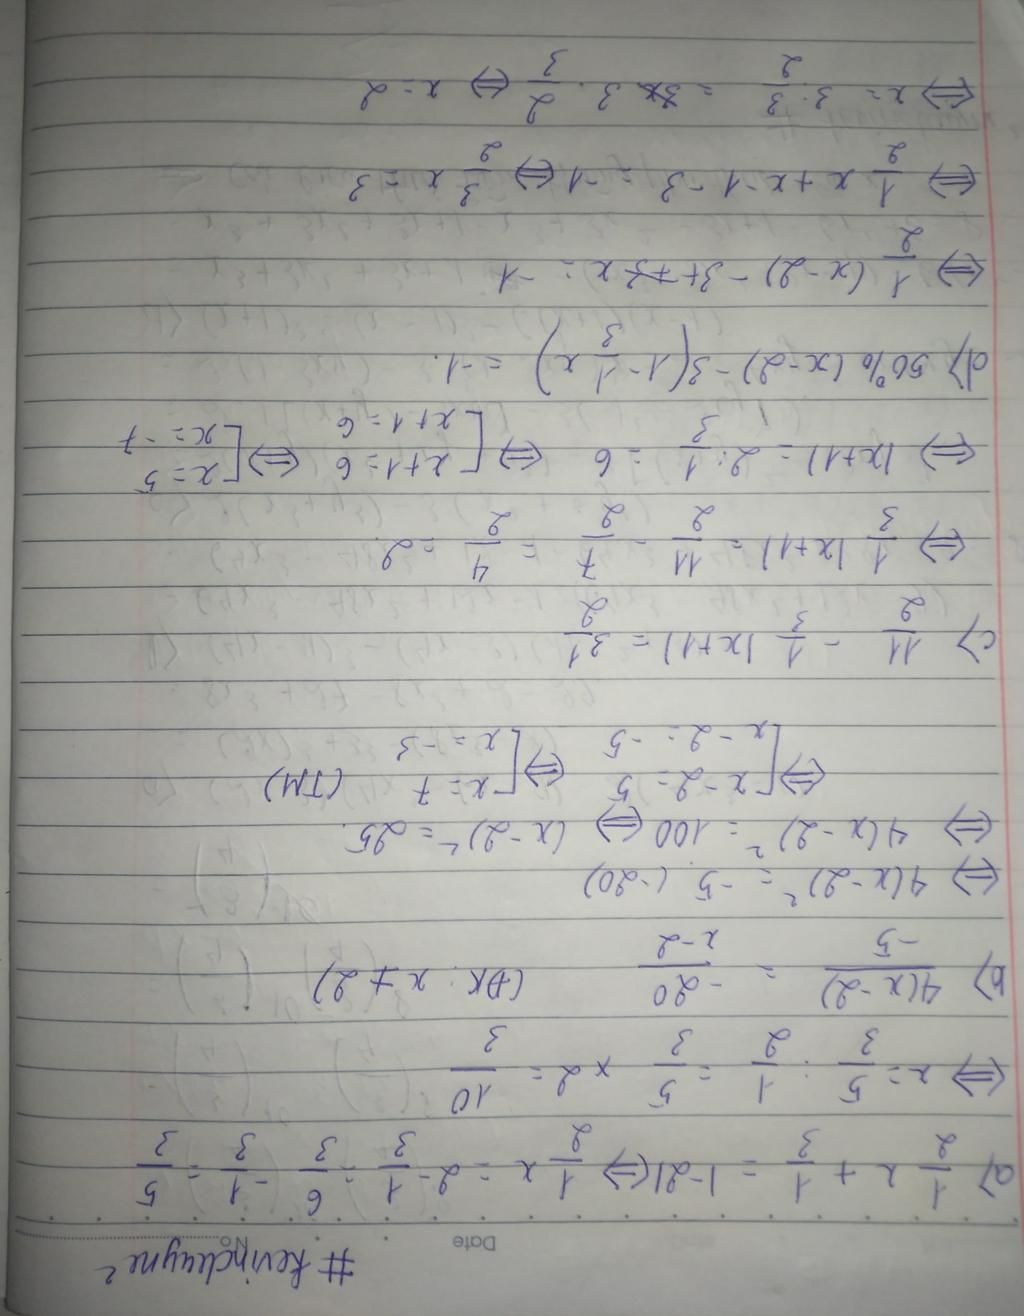 #kevincheyne²
Date No
a) 1/2 x + 1/3 = |-2| ⇔ 1/2 x = 2 - 1/3 = 6/3 - 1/3 = 5/3
⇔ x = 5/3 : 1/2 = 5/3 × 2 = 10/3
b) 4(x-2)/-5 = -20/x-2 (ĐK: x ≠ 2)
⇔ 4(x-2)² = -5.(-20)
⇔ 4(x-2)² = 100 ⇔ (x-2)² = 25.
⇔ [x-2=5 ⇔ [x=7 (TM)
[x-2=-5 [x=-3
c) 11/2 - 1/3 |x+1| = 3 1/2
⇔ 1/3 |x+1| = 11/2 - 7/2 = 4/2 = 2.
⇔ |x+1| = 2 : 1/3 = 6 ⇔ [x+1=6 ⇔ [x=5
[x+1=6 [x=-7
d) 50% (x-2) - 3(1 - 1/3 x) = -1.
⇔ 1/2 (x-2) - 3 + x = -1
⇔ 1/2 x + x - 1 - 3 = -1 ⇔ 3/2 x = 3
⇔ x = 3 : 3/2 = 3 . 2/3 ⇔ x = 2